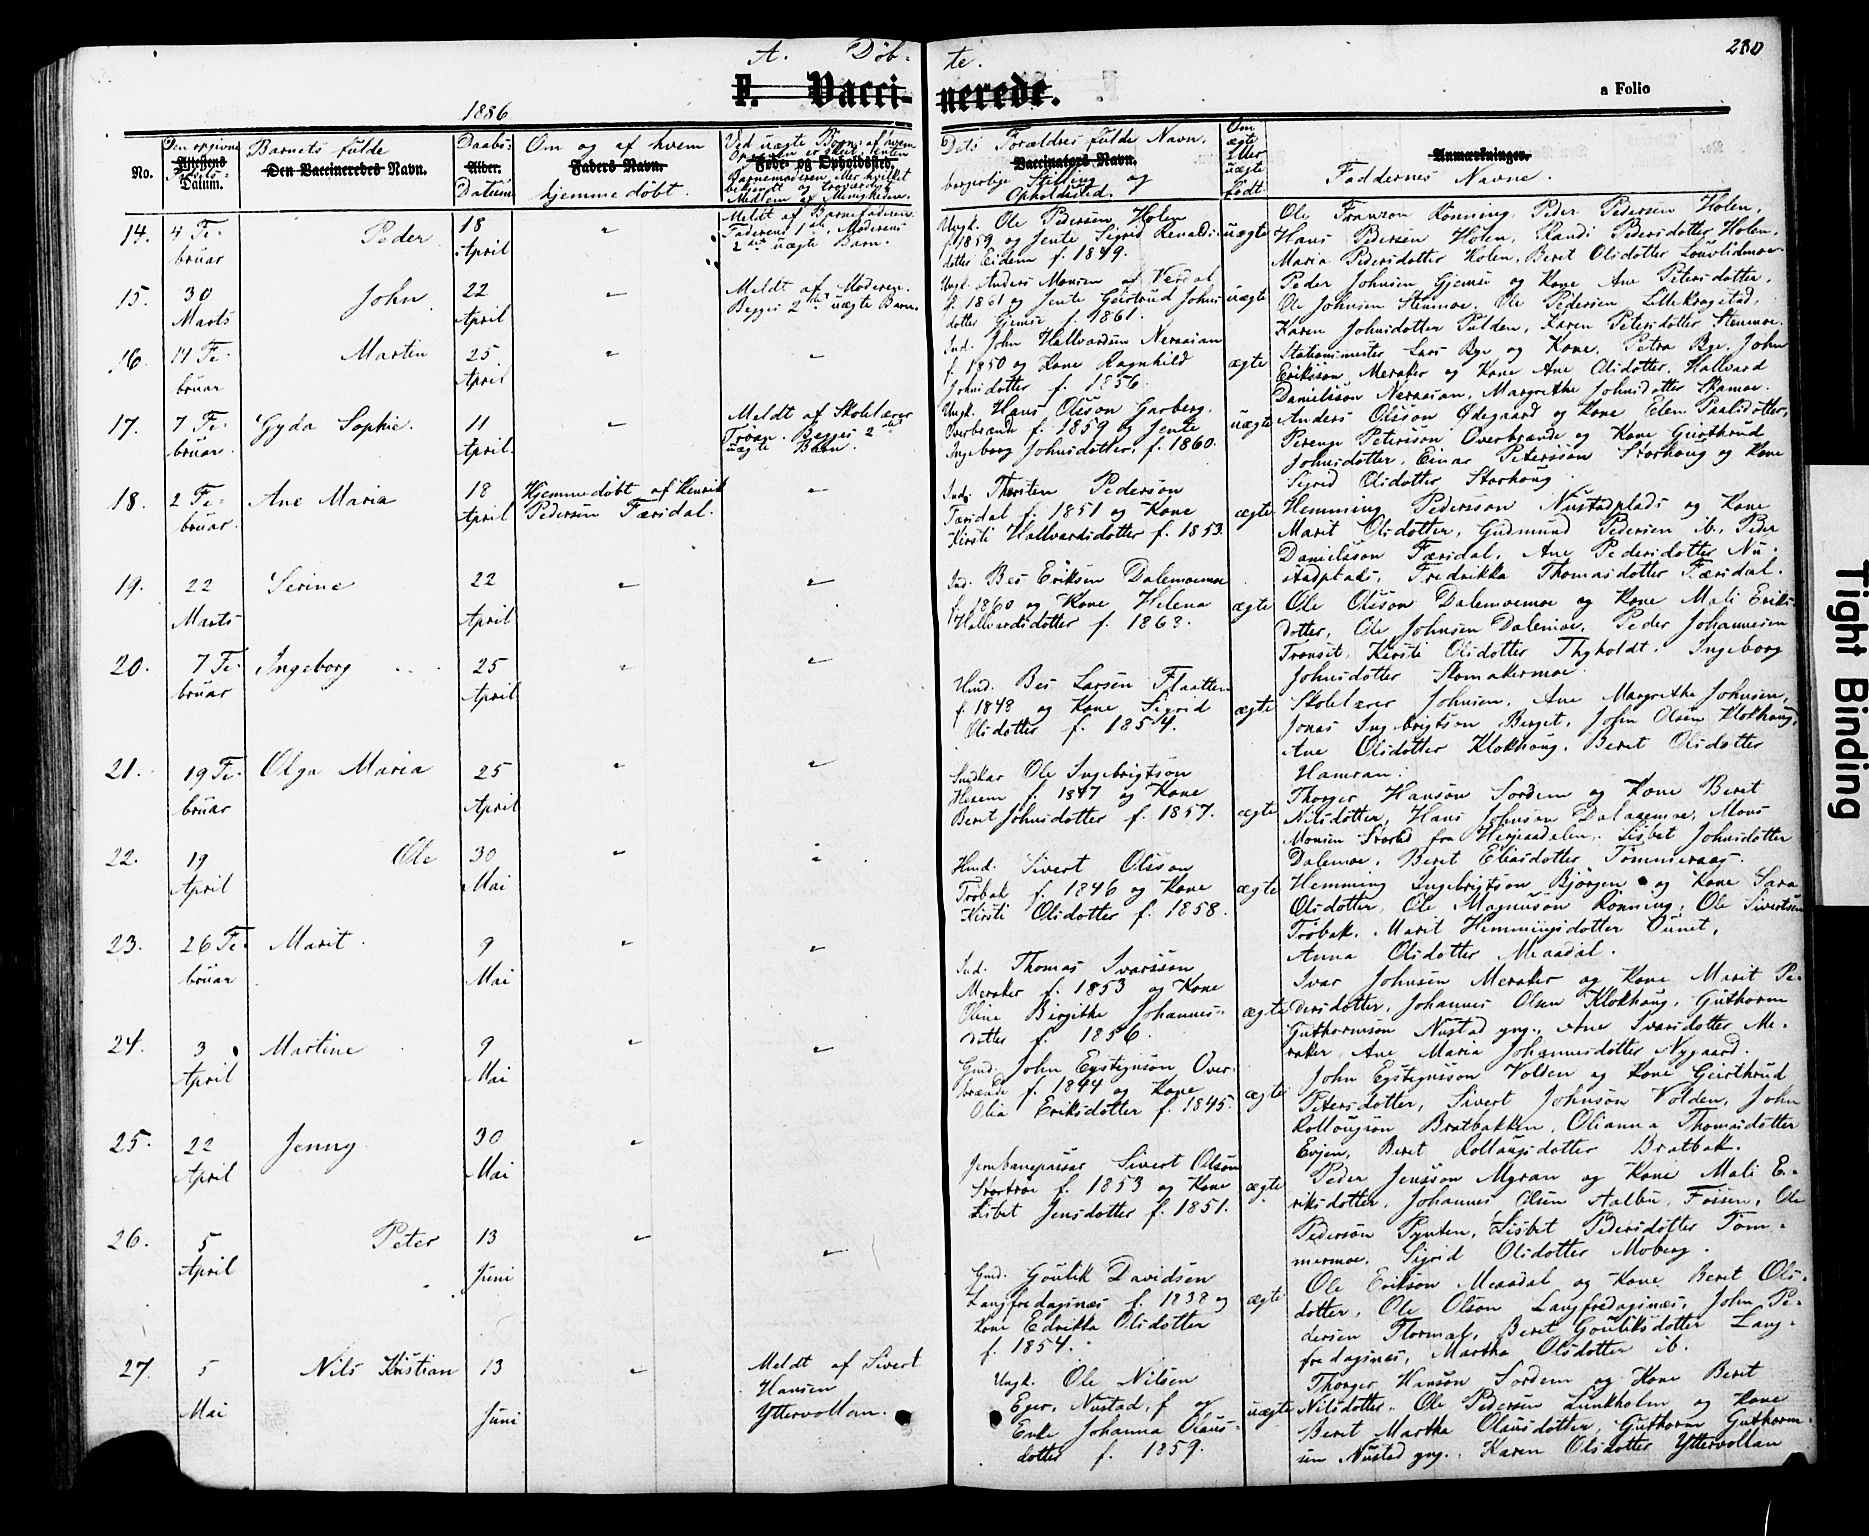 A. Døb- te. 280
F. Vacci- nerede. a Folio
1886
No.
Den opgivne Attestens Datum.
Barnets fulde Den Vaccineredes Navn.
Daabs- Alder. Datum
Om og af hvem Faders Navn. hjemmedøbt.
Ved uægte Børn: af hvem
Føde- og Opholdssted.
Barnemoderen eller hvilket
bekjendt og troværdig
Medlem af Menigheden.
Forældres fulde Navn,
Vaccinators Navn.
borgerlige Stilling og
Opholdssted.
Om ægte eller uægte født.
Anmærkninger.
Faddernes Navne.
14. 4 Fe-
bruar
Peder
18
April
"
Meldt af Barnefaderen.
Faderens 1ste, Moderens
2det uægte Barn.
Ungk. Ole Pedersen Holen
f. 1859 og Jente Sigrid Renalds-
dotter Eidem f. 1849.
uægte
Ole Franzon Rønning, Peder Pedersen Holen,
Hans Pedersen Holen, Randi Pedersdotter Holen,
Maria Pedersdotter Holen, Beret Olsdotter
15. 30
Marts
John
22
April
"
Meldt af Moderen.
Begges 2det uægte Barn.
Ungk. Anders Monsen af Verdal
f. 1861 og Jente Geirtrud Johns-
dotter Gjemse f. 1861.
uægte
Peder Johnsen Gjemse og Kone Ane Petersdotter,
Ole Johnsen Stenmoe, Ole Pedersen Lillekragstad,
Karen Johnsdotter Pulden, Karen Petersdotter Stenmoe.
16. 14 Fe-
bruar
Martin
25
April
"
"
Ind. John Hallvardsen Neraaian
f. 1850 og Kone Ragnhild
Johnsdotter f. 1856.
ægte
Stationsmester Lars Bye og Kone Petra Bye, John
Eriksson Meraker og Kone Ane Olsdotter, Hallvard
Danielsson Neraaian, Margrethe Johnsdotter Skamoe.
17. 7 Fe-
bruar.
Gyda Sophie.
11
April
"
Meldt af Skolelærer
Trøan. Begges 2det
uægte Barn.
Ungk. Hans Olsson Garberg,
Overbrænde f. 1859 og Jente
Ingeborg Johnsdotter, f. 1860.
uægte
Anders Olsson Ødegaard og Kone Elen Paalsdotter,
Peterson Overbrænde og Kone Geirthrud
Johnsdotter, Einar Petersson Storhaug og Kone
Sigrid Olsdotter Storhaug.
18. 2 Fe-
bruar.
Ane Maria
18
April
Hjemmedøbt af Henrik
Pedersen Færsdal.
"
Ind. Thorsten Pederson
Færsdal f. 1851 og Kone
Kirsti Hallvardsdotter f. 1853
ægte
Hemming Pedersson Nustadplads og Kone
Marit Olsdotter, Gudmund Pedersen ib., Peder
Danielsson Færsdal, Ane Pedersdotter Nu-
stadplads, Fredrikka Thomasdotter Færsdal.
19. 22
Marts
Serine
22
April
"
"
Ind. Bes Eriksen Dalemoemoe
f. 1860 og Kone Helena
Hallvardsdotter f. 1863.
ægte
Ole Olsson Dalemoemoe og Kone Mali Eriks-
dotter, Ole Johnsen Dalemoe, Peder Johannesen
Kirsti Olsdotter Thyholdt, Ingeborg
Johnsdotter Skomakermoe.
20. 7 Fe-
bruar
Ingeborg
25
April
"
"
Hmd. Bes Larsen Flaatten
f. 1848 og Kone Sigrid
Olsdotter f. 1854.
ægte
Skolelærer Johnsen, Ane Margrethe Johnsen,
Jonas Ingebrigtson Berget, John Olsen Klokhaug,
Ane Olsdotter Klokhaug, Beret Olsdotter
Hamran.
21. 19 Fe-
bruar
Olga Maria
25
April
"
"
Snedker Ole Ingebrigtson
f. 1847 og Kone
Beret Johnsdotter f. 1857.
ægte
Thorger Hanson Sordem og Kone Beret
Nilsdotter, Hans Johnson Dalaaemoe, Mons
Monsen fra Herjeaadalen, Lisbet Johnsdotter
Dalemoe, Beret Eliasdotter Tømmeraas.
22. 19
April
Ole
30
Mai
"
"
Hmd. Sivert Olsson
Trøbak f. 1846 og Kone
Kirsti Olsdotter f. 1858.
ægte
Hemming Ingebrigtson Bjørgen og Kone Sara
Olsdotter, Ole Magnuson Rønning, Ole Sivertsen
Trøbak, Marit Hemmingsdotter
Anna Olsdotter Meaadal.
23. 26 Fe-
bruar
Marit.
9
Mai
"
"
Ind. Thomas Ivarssen
Meraker f. 1853 og Kone
Oline Birgitte Johannes-
dotter f. 1856.
ægte
Ivar Johnsen Meraker og Kone Marit Pe-
dersdotter, Johannes Olsen Klokhaug, Guthorm
Guthormson Nustad yng., Ane Ivarsdotter Me-
raker, Ane Maria Johannesdotter Nygaard.
24. 3
April
Martine
9
Mai
"
"
Gmd. John Eystegnson Over-
brænde f. 1844 og Kone
Olia Eriksdotter f. 1845.
ægte
John Eystegnsson Volden og Kone Geirthrud
Petersdotter, Sivert Johnson Volden, John
Rollougson Bratbakken, Olianna Thomasdotter
Evjen, Beret Rollaugsdotter Bratbak.
25. 22
April
Jenny
30
Mai
"
Jernbanepasser Sivert Olson
Stortrøe f. 1853 og Kone
Lisbet Jensdotter f. 1851.
ægte
Peder Jensson Myran og Kone Mali E-
riksdotter, Johannes Olsen Aalbu, Fossen, Ole
Pederson Pynten, Lisbet Pedersdotter Tøm-
mermoe, Sigrid Olsdotter Moberg.
26. 5
April
Peter
13
Juni
"
"
Gmd. Goulik Davidsen
Langfredagsnæs f. 1838 og
Kone Edvikka Olsdotter
f. 1854.
ægte
Ole Erikson Meaadal og Kone Beret Ols-
dotter, Ole Olson Langfredagsnæs, John Pe-
dersen Flormæl, Beret Gouliksdotter Lang-
fredagsnæs, Martha Olsdotter ib.
27. 5
Mai
Nils Kristian
13
Juni
"
Meldt af Sivert
Hansen
Yttervollan.
Ungk. Ole Nilsen
Eger, Nustad, f og
Enke Johanna Olaus-
dotter f. 1859.
uægte
Thorger Hanson Sordem og Kone Beret
Nilsdotter, Ole Pedersen Lunkholm og Kone
Beret Martha Olausdotter, Guthorm Guthorm-
sen Nustad yng., Karen Olsdotter Yttervollan
Tight Binding